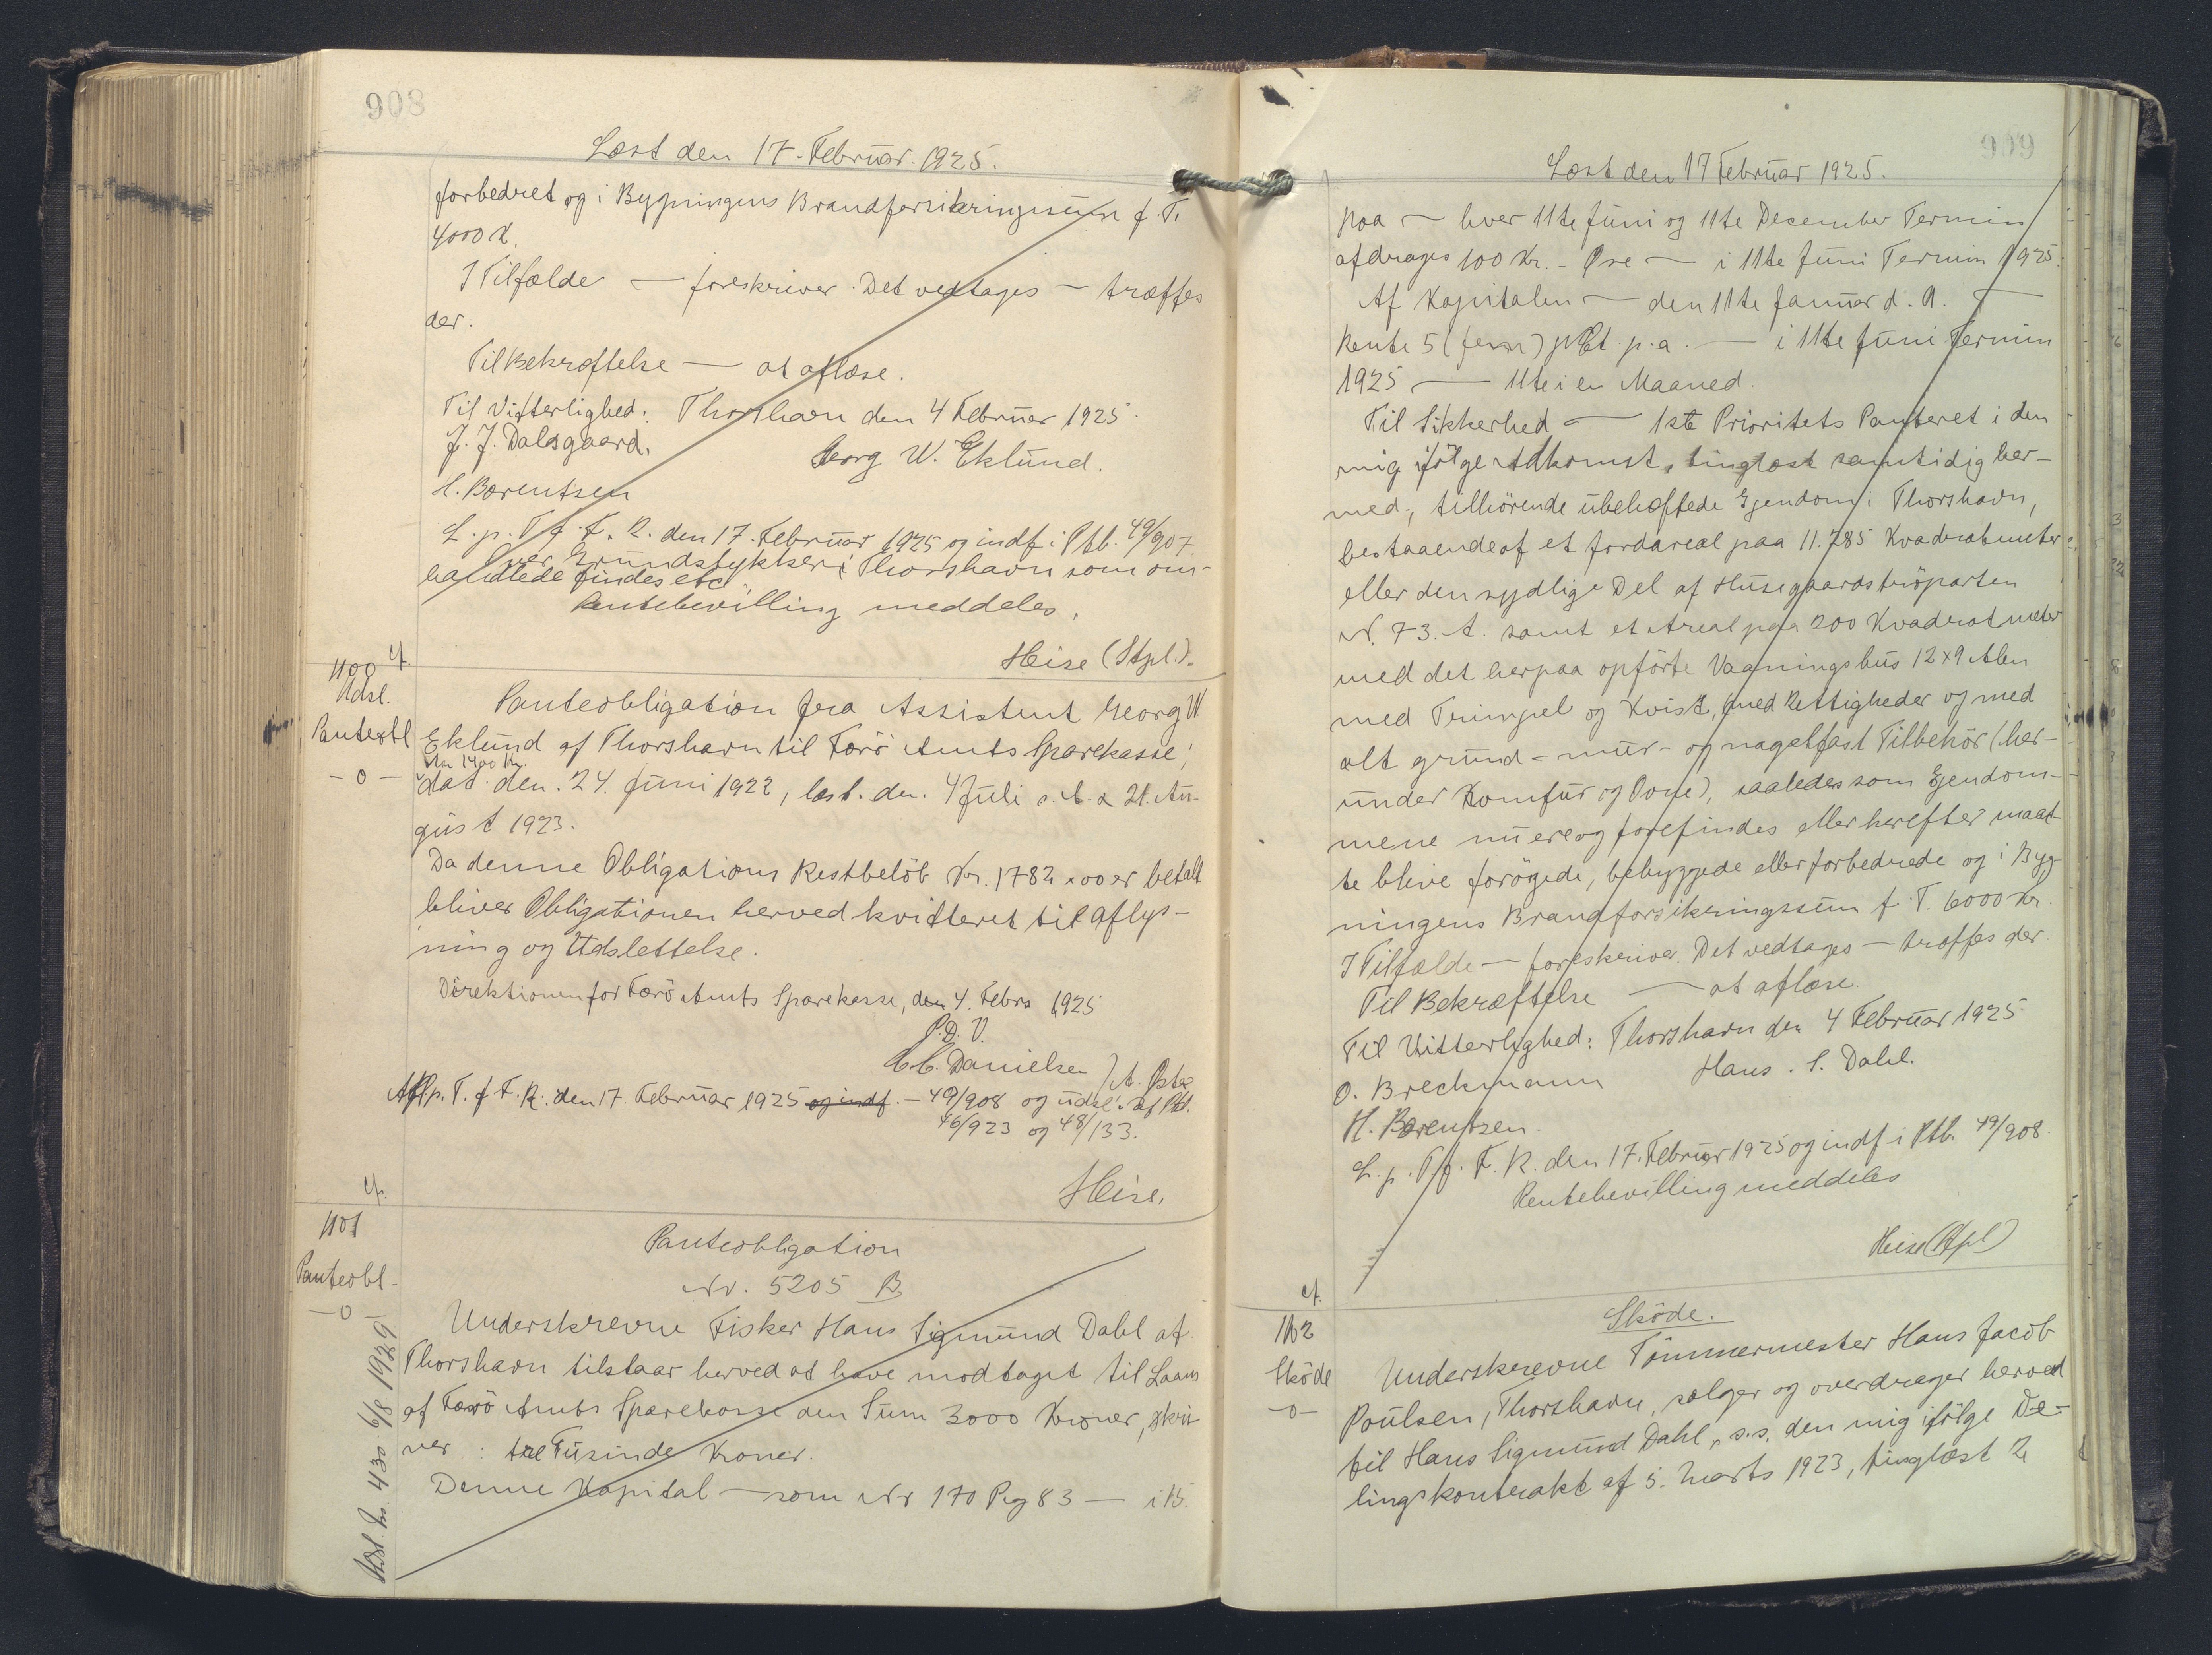 908
Læst den 17. Februar 1925.
forbedret og i Bygningens Brandforsikringssum f. T.
4000 K.
I Tilfælde — foreskriver. Det vedtages — træffes
der.
Til Bekræftelse — at aflæse.
Til Vitterlighed: Thorshavn den 4 Februar 1925.
J. J. Dalsgaard. Georg W. Eklund.
H. Bærentsen
L. p. T. f. F. R. den 17. Februar 1925 og indf. i Ptb. 49/907.
over Grundstykker i Thorshavn som om-
handlede findes etc
Rentebevilling meddeles.
Heise (Stpl.).
cf.
1100
Udsl.
Panteobl
— o —
Panteobligation fra Assistent Georg W
Eklund af Thorshavn til Færö Amts Sparekasse,
stor 1400 Kr.
dat. den. 24. Juni 1922, læst. den. 4 Juli s. A. & 21. Au-
gust 1923.
Da denne Obligations Restbelöb Kr. 1782 x 00 er betalt
bliver Obligationen herved kvitteret til Aflys-
ning og Udslettelse.
Direktionen for Færö Amts Sparekasse, den 4. Febra 1925
P. D. V.
C. C. Danielsen / A. Öster
Afl. p. T. f. F. R. den 17. Februar 1925 og indf. — 49/908 og udsl. af Ptb.
46/923 og 48/133.
Heise.
cf.
1101
Panteobl-
— o —
Udsl. Nr. 430. 6/8 1929
Panteobligation
Nr. 5205 B
Underskrevne Fisker Hans Sigmund Dahl af
Thorshavn tilstaar herved at have modtaget til Laans
af Færö Amts Sparekasse den Sum 3000 Kroner, skri-
ver: tre Tusinde Kroner.
Denne Kapital — som Nr 170 Pag 83 — i 15.
909
Læst den 17 Februar 1925.
paa — hver 11te Juni og 11te December Termin
afdrages 100 Kr. - Øre — i 11te Juni Termin 1925.
Af Kapitalen — den 11te Januar d. A. —
Rente 5 (fem) pCt. p. a. — i 11te Juni Termin
1925 — 11te i en Maaned.
Til Sikkerhed — 1ste Prioritets Panteret i den
mig ifölge Adkomst, tinglæst samtidig her-
med, tilhörende ubehæftede Ejendom i Thorshavn,
bestaaende af et Jordareal paa 11.785 Kvadratmeter
eller den sydlige Del af Husagaardströparten
Nr. 73. A. samt et Areal paa 200 Kvadratmeter
med det herpaa opförte Vaaningshus 12 x 9 Alen
med Trimpel og Kvist, med Rettigheder og med
alt grund- mur- og nagelfast Tilbehör (her-
under Komfur og Ovne), saaledes som Ejendom-
mene nu ere og forefindes eller herefter maat-
te blive forögede, bebyggede eller forbedrede og i Byg-
ningens Brandforsikringssum f. T. 6000 Kr.
I Tilfælde — foreskriver. Det vedtages — træffes der
Til Bekræftelse — at aflæse.
Til Vitterlighed: Thorshavn den 4 Februar 1925.
O. Breckmann Hans. S. Dahl.
H. Bærentsen.
L. p. T. f. F. R. den 17. Februar 1925 og indf i Ptb. 49/908.
Rentebevilling meddeles
Heise (Stpl)
cf.
1102
Sköde
— o —
Sköde.
Underskrevne Tömmermester Hans Jacob
Poulsen, Thorshavn, sælger og overdrager herved
til Hans Sigmund Dahl, s. s. den mig ifölge De-
lingskontrakt af 5. Marts 1923, tinglæst 2